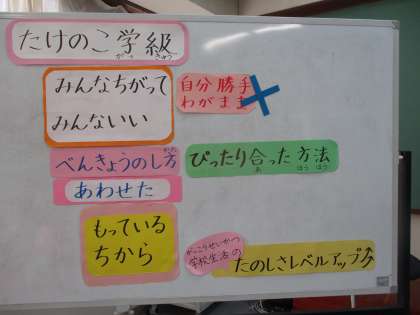 たけのこ学級
がっ きゅう
みんなちがって
みんないい
自分勝手
わがまま
べんきょうのし方
かた
ぴったり合った方法
あ ほう ほう
あわせた
もっている
ちから
がっこうせいかつ
学校生活の
たのしさレベルアップ↗